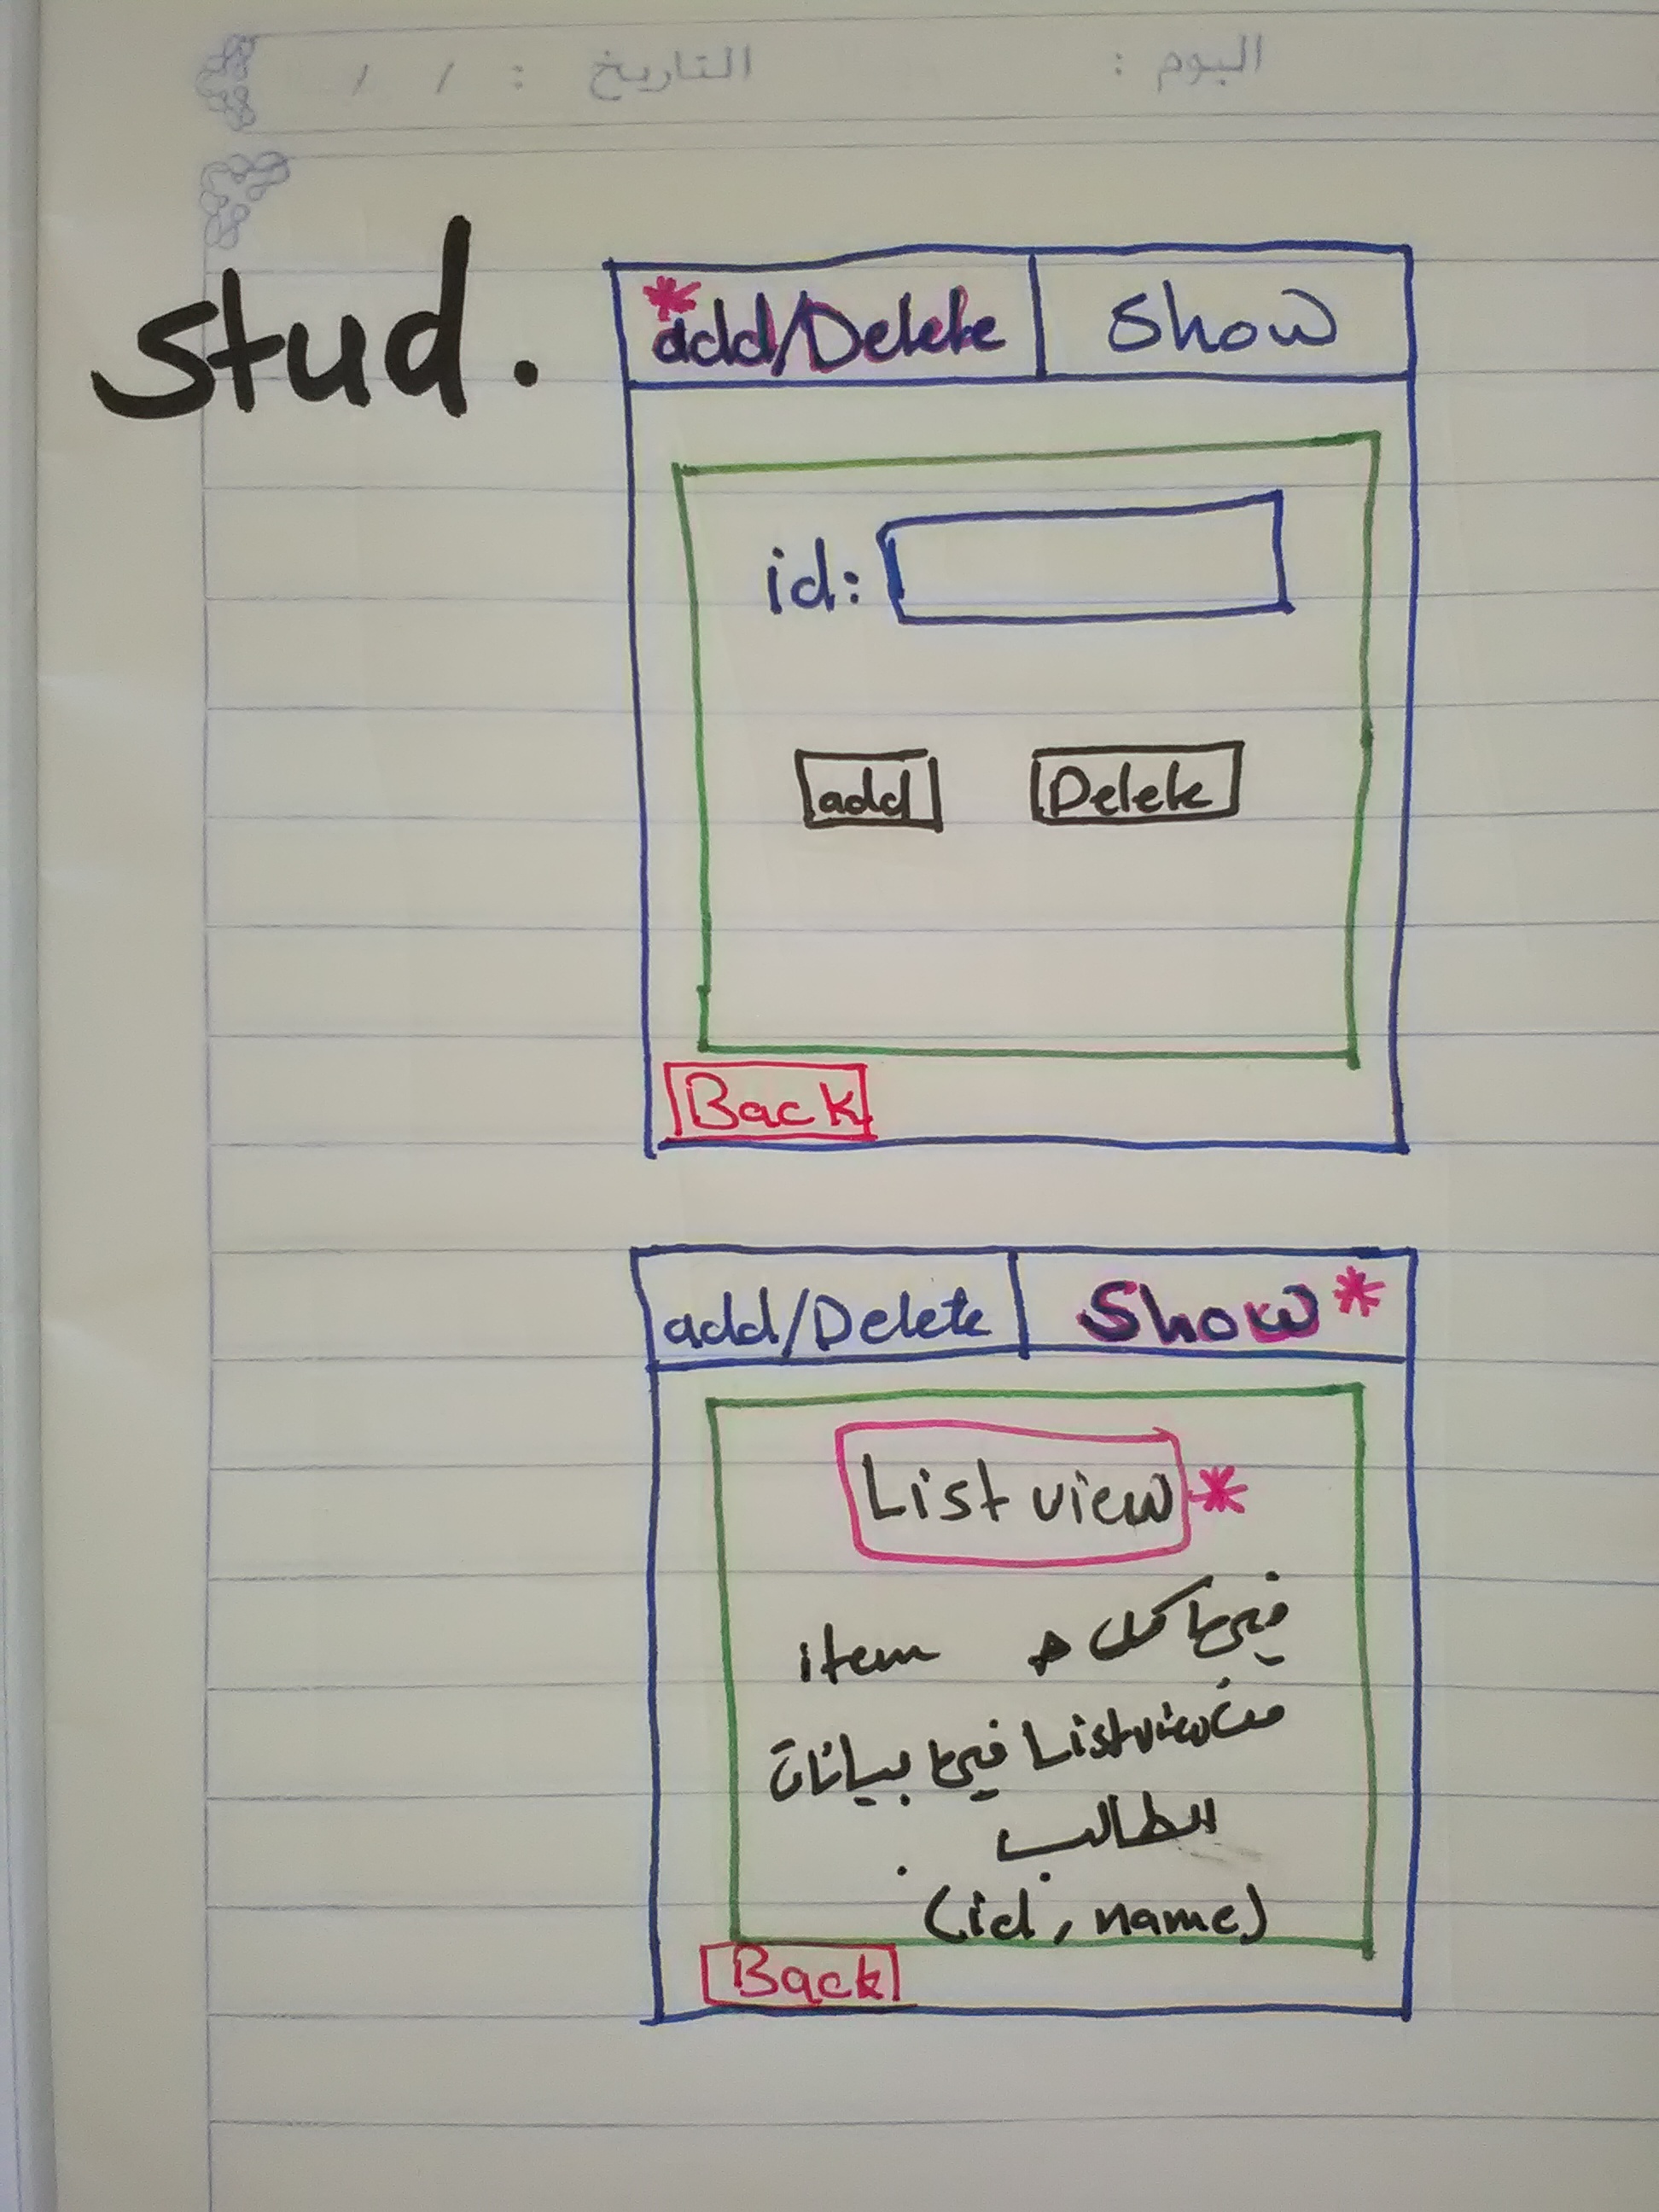 اليوم :
التاريخ : / /
stud.
*add/Delete
Show
id:
add
Delete
Back
add/Delete
Show*
List view*
فيها كل item
من Listview فيها بيانات
الطالب .
(id, name)
Back